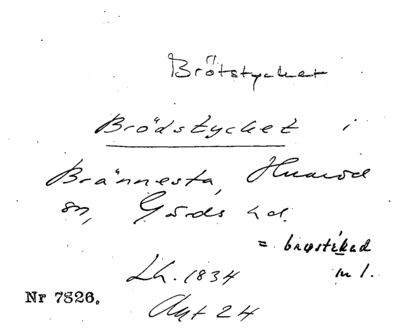 Brötstycket
Brödstycket i
Brännesta, Huaröd
sn, Gärds hd.
= brøstikad
m l.
Lh. 1834
Akt 24
Nr 7826.